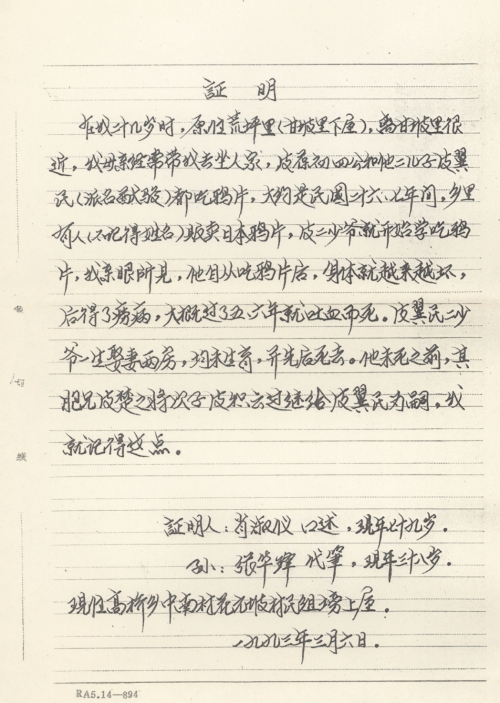 証 明
在我二十几岁时，原住荒坪里(甘坡里下屋)，离甘坡里很
近，我母亲经常带我去坐人家，皮葆初四公和他二儿子皮翼
民(派名猷 )都吃鸦片，大约是民国二十六、七年间，乡里
有人(不记得姓名)贩卖日本鸦片，皮二少爷就开始学吃鸦
片，我亲眼所见，他自从吃鸦片后，身体就越来越坏，
后得了痨病，大概过了五、六年就吐血而死。皮翼民二少
爷一生娶妻两房，均未生育，并先后死去。他未死之前，其
胞兄皮楚之将次子皮积云过继给皮翼民为嗣，我
就记得这点。
証明人：肖淑仪 口述，现年七十九岁．
孙：张华辉 代筆，现年三十八岁．
现住高桥乡中南村花元坡村民组 上屋．
一九九三年三月六日．
RA5.14—894